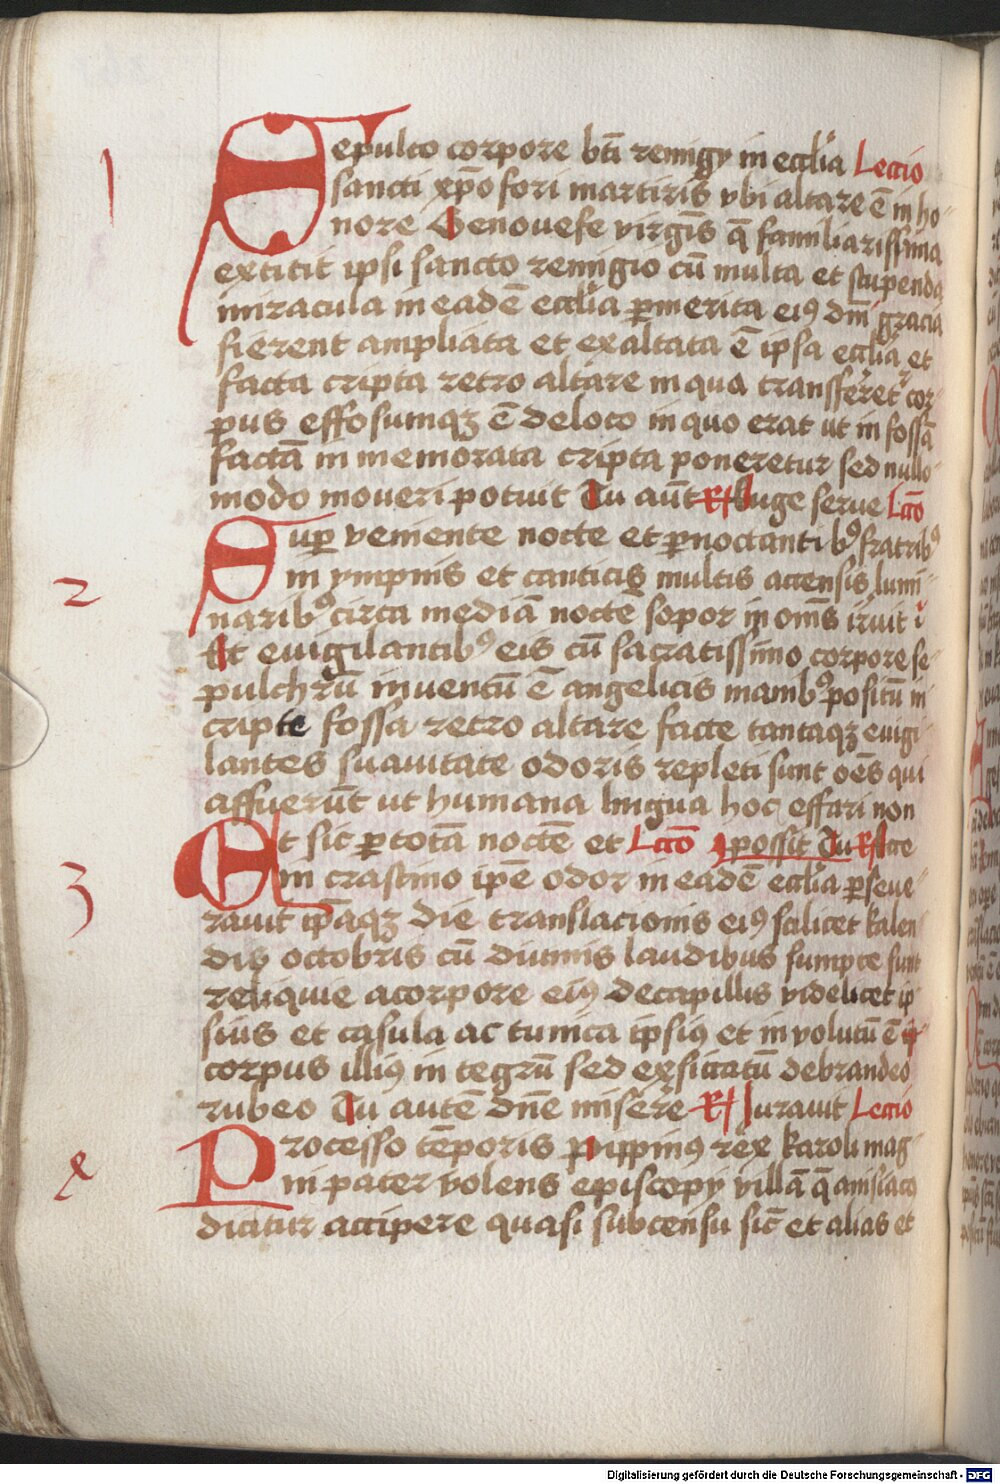 1
Sepulto corpore bti remigy in ecclia Lectio
sancti xpofori martiris vbi altare ē in ho
nore Genouefe virgīs q̄ familiarissima
extitit ipsi sancto remigio cū multa et stupenda
miracula in eadē ecclia ꝑ merita eiꝯ dm̄ gracia
fierent ampliata et exaltata ē ipsa ecclia et
facta cripta retro altare in qua transfferet᷑ cor
pus effosumqꝫ ē de loco in quo erat ut in fossa
factā in memorata cripta poneretur sed nullo
modo moueri potuit Tu aūt R Euge serue Lcō
2
Suꝑ veniente nocte et ꝑnoctantibꝯ fratribꝯ
in ympnis et canticis multis accensis lumi
naribꝯ circa mediā noctē sopor in om̄s iruit
At euigilantibꝯ eis cū sacratissimo corpore se
pulchrū inuentū ē angelicis manibꝯ positū in
cripte fossa retro altare facte tantaqꝫ euigi
lantes suauitate odoris repleti sunt oēs qui
affuerūt ut humana lingua hoc effari non
3
Et sic ꝑ totā noctē et Lcō possit Tu R
in crastino ipē odor in eadē ecclia ꝑseue
rauit ip̄aqꝫ die translacionis eiꝯ scilicet kalen
dis octobris cū diuinis laudibus sumpte sunt
reliquie a corpore eiꝯ de capillis videlicet ip
sius et casula ac tunica ipsiꝯ et inuolutū ē
corpus illiꝯ in tegrū sed exsiccatū de brandeo
rubeo Tu autē dn̄e miserē R Iurauit Lectio
4
Processo tēporis pippinꝯ rex karoli mag
ni pater volens episcopy villā q̄ anisiaco
dicitur accipere quasi sub censu sic̄ et alias et
Digitalisierung gefördert durch die Deutsche Forschungsgemeinschaft - DFG